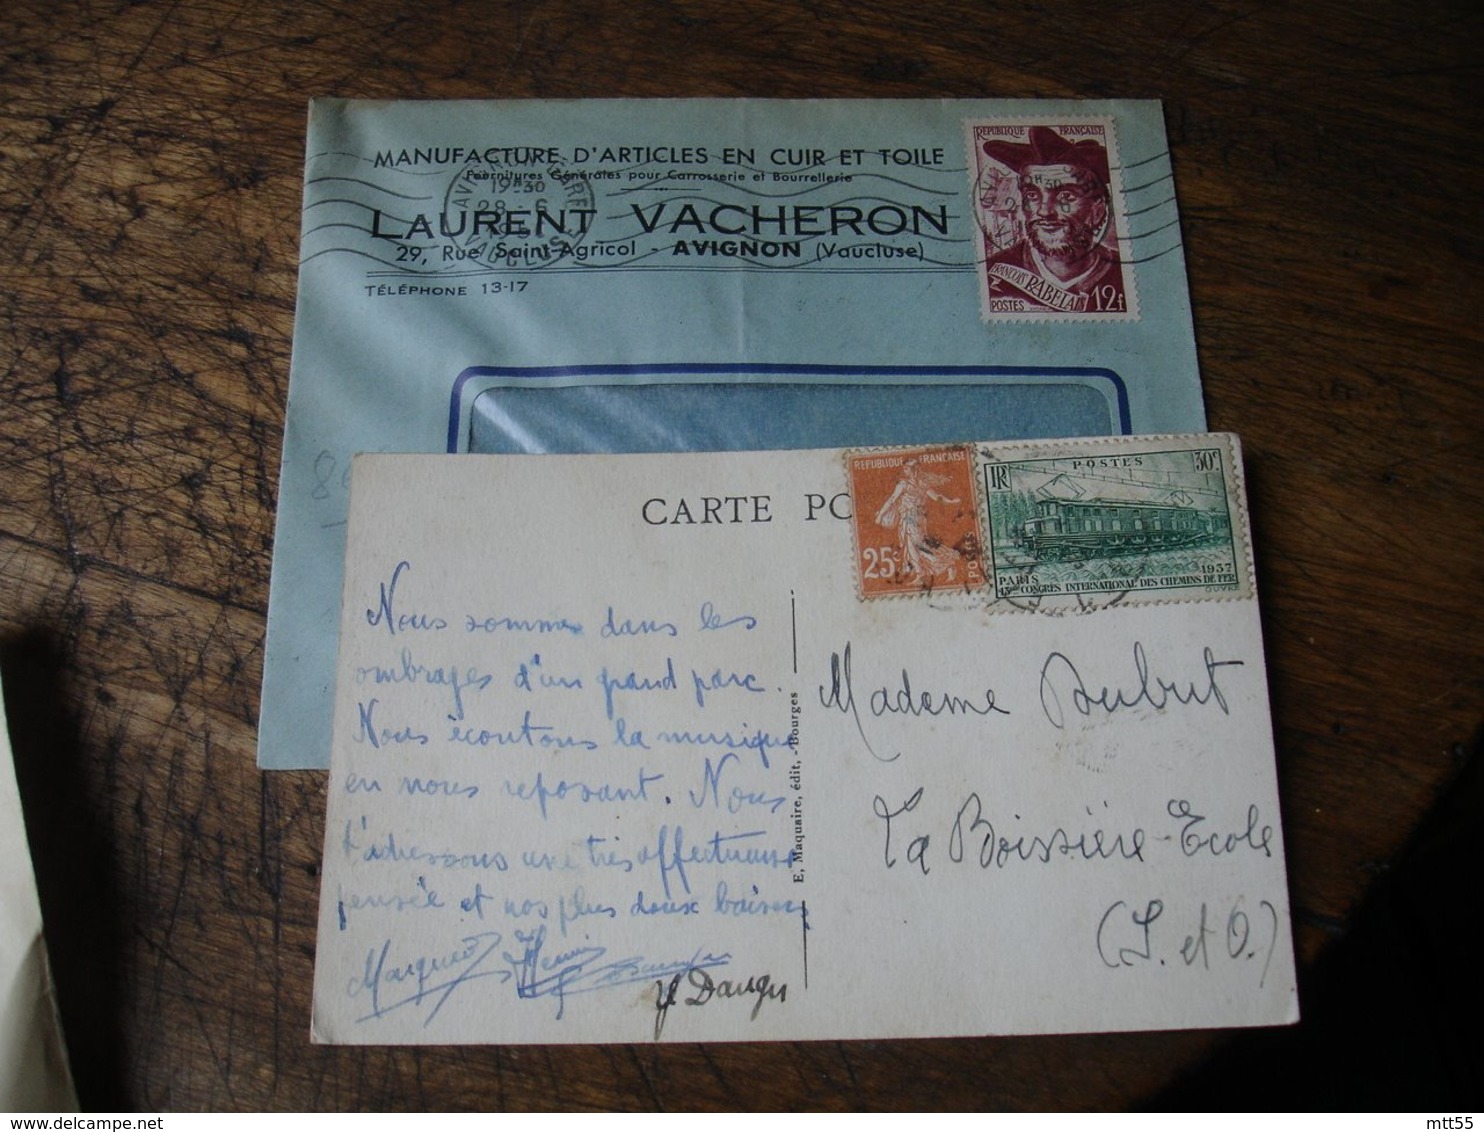 MANUFACTURE D'ARTICLES EN CUIR ET TOILE
Fournitures Générales pour Carrosserie et Bourrellerie
LAURENT VACHERON
29, Rue Saint-Agricol - AVIGNON (Vaucluse)
TÉLÉPHONE 13-17
19H30
28-6
VAUCLUSE
RÉPUBLIQUE FRANÇAISE
FRANÇOIS RABELAIS
POSTES 12f
CARTE PO
REPUBLIQUE FRANÇAISE
25c
RF POSTES 30c
PARIS 1937
13ème CONGRES INTERNATIONAL DES CHEMINS DE FER
OUVRÉ
Nous sommes dans les
ombrages d'un grand parc.
Nous écoutons la musique
en nous reposant. Nous
t'adressons une très affectueuse
pensée et nos plus doux baisers
E. Maquaire, édit, - Bourges
Madame Dubut
La Boissière-Ecole
(S. et O.)
mtt55